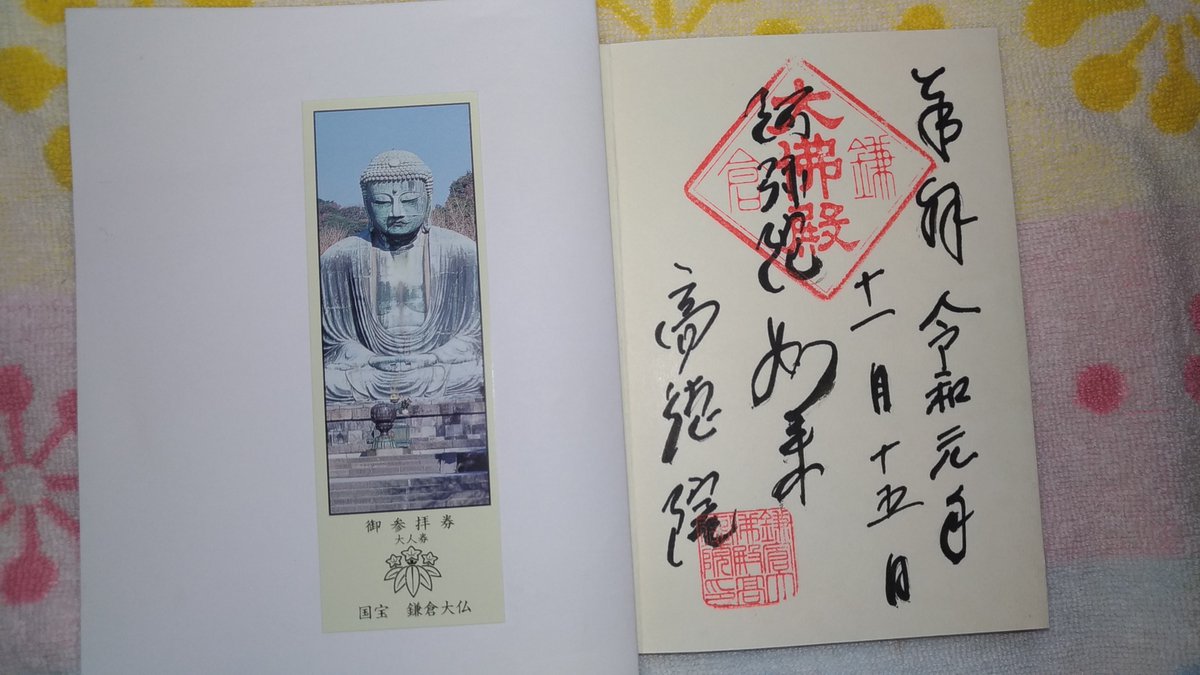 御参拝券
大人券
国宝 鎌倉大仏
奉拝 令和元年
十一月十五日
鎌倉
大佛殿
阿弥陀如来
高徳院
鎌倉大
佛殿高
院印